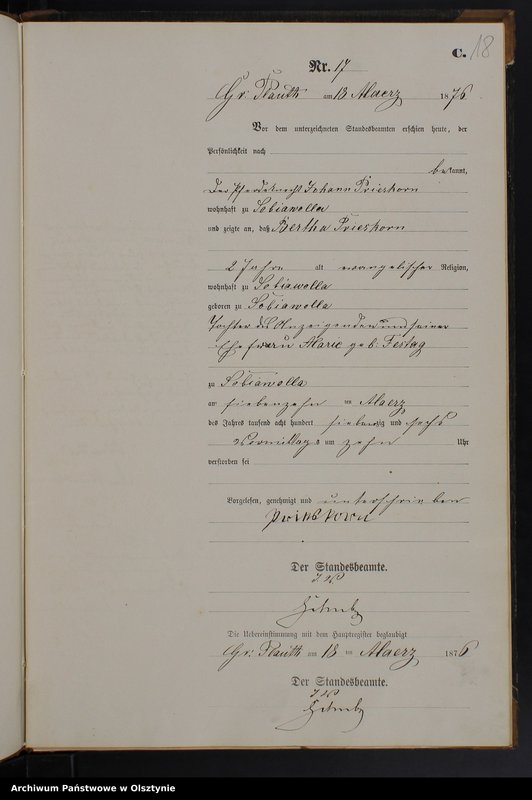 C. 18
Nr. 17
Gr: Plauth am 18 Maerz 1876
Vor dem unterzeichneten Standesbeamten erschien heute, der
Persönlichkeit nach
bekannt,
der Pferdeknecht Johann Prieskorn
wohnhaft zu Sobiewolla
und zeigte an, daß Bertha Prieskorn
2 Jahre alt evangelischer Religion,
wohnhaft zu Sobiewolla
geboren zu Sobiewolla
Tochter des Anzeigenden und seiner
Ehefrau Marie geb: Festag
zu Sobiewolla
am siebenzehn ten Maerz
des Jahres tausend acht hundert siebenzig und sechs
Vormittags um zehn Uhr
verstorben sei
Vorgelesen, genehmigt und unterschrieben
Prieskorn
Der Standesbeamte.
I. V.
Die Uebereinstimmung mit dem Hauptregister beglaubigt
Gr: Plauth am 18 ten Maerz 1876
Der Standesbeamte.
I. V.
Archiwum Państwowe w Olsztynie